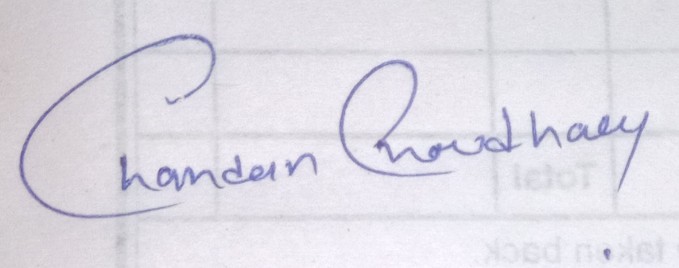 Chandan Choudhary
Total
taken back